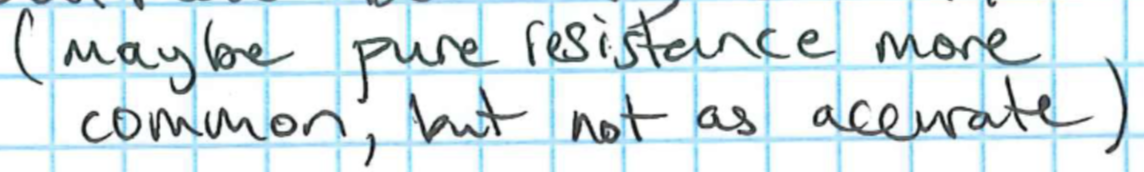 (maybe pure resistance more
common, but not as accurate)